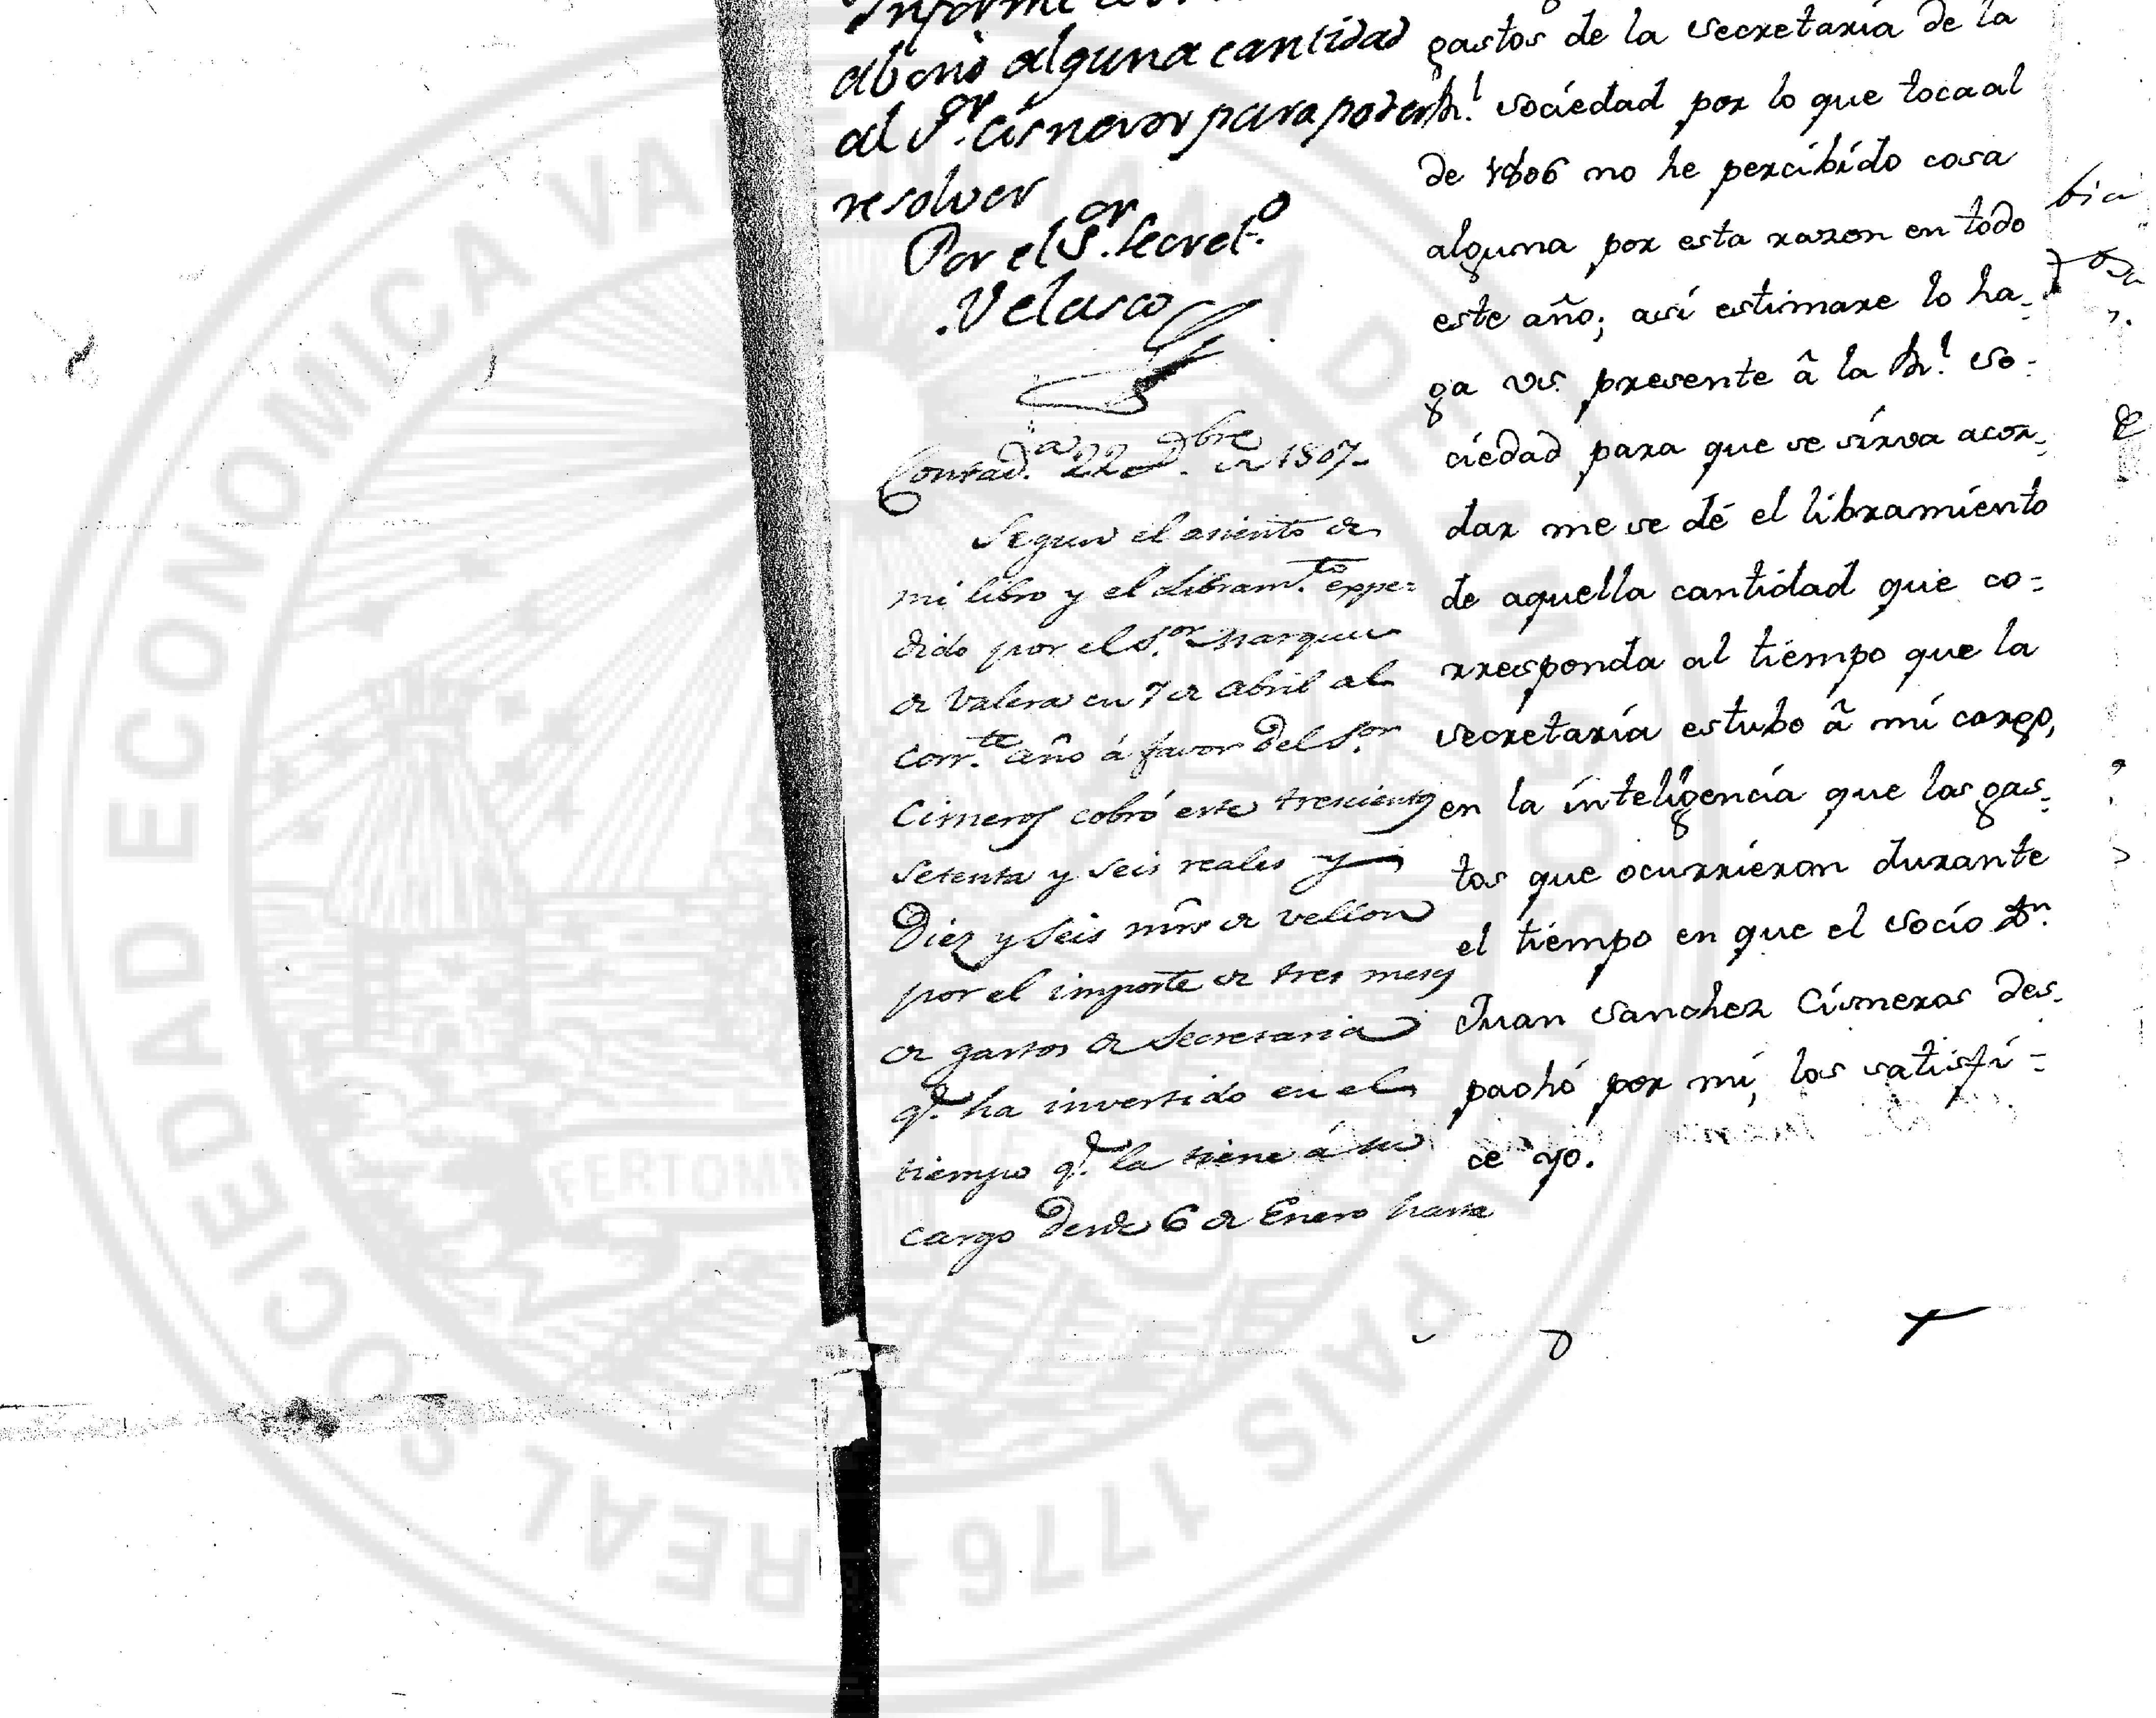 abonó alguna cantidad
al S.or Cisneros para poder
resolver
Por el S.or Secret.o
Velasco
Contad.a 22 D.bre de 1807.
Segun el asiento de
mi libro y el Libram.to expe=
dido por el S.or Marques
de Valera en 7 de Abril al
corr.te año á favor del S.or
Cisneros cobró este trescientos
setenta y seis reales y
Diez y seis mrs de vellon
por el importe de tres meses
de gastos de Secretaria
q.e ha invertido en el
tiempo q.e la tiene á su
cargo desde 6 de Enero hasta
gastos de la secretaría de la
R.l sociedad por lo que toca al
de 1806 no he percibido cosa
alguna por esta razon en todo
este año; así estimare lo ha-
ga vs. presente â la R.l So-
ciedad para que se sirva acor-
dar me se dé el libramiento
de aquella cantidad que co=
rresponda al tiempo que la
secretaría estubo â mi cargo,
en la inteligencia que los gas-
tos que ocurrieron durante
el tiempo en que el socio D.n
Juan Sanchez Cisneros des-
pachó por mí, los satisfi=
ce yo.
SOCIEDAD ECONOMICA
REAL
1776
PAIS